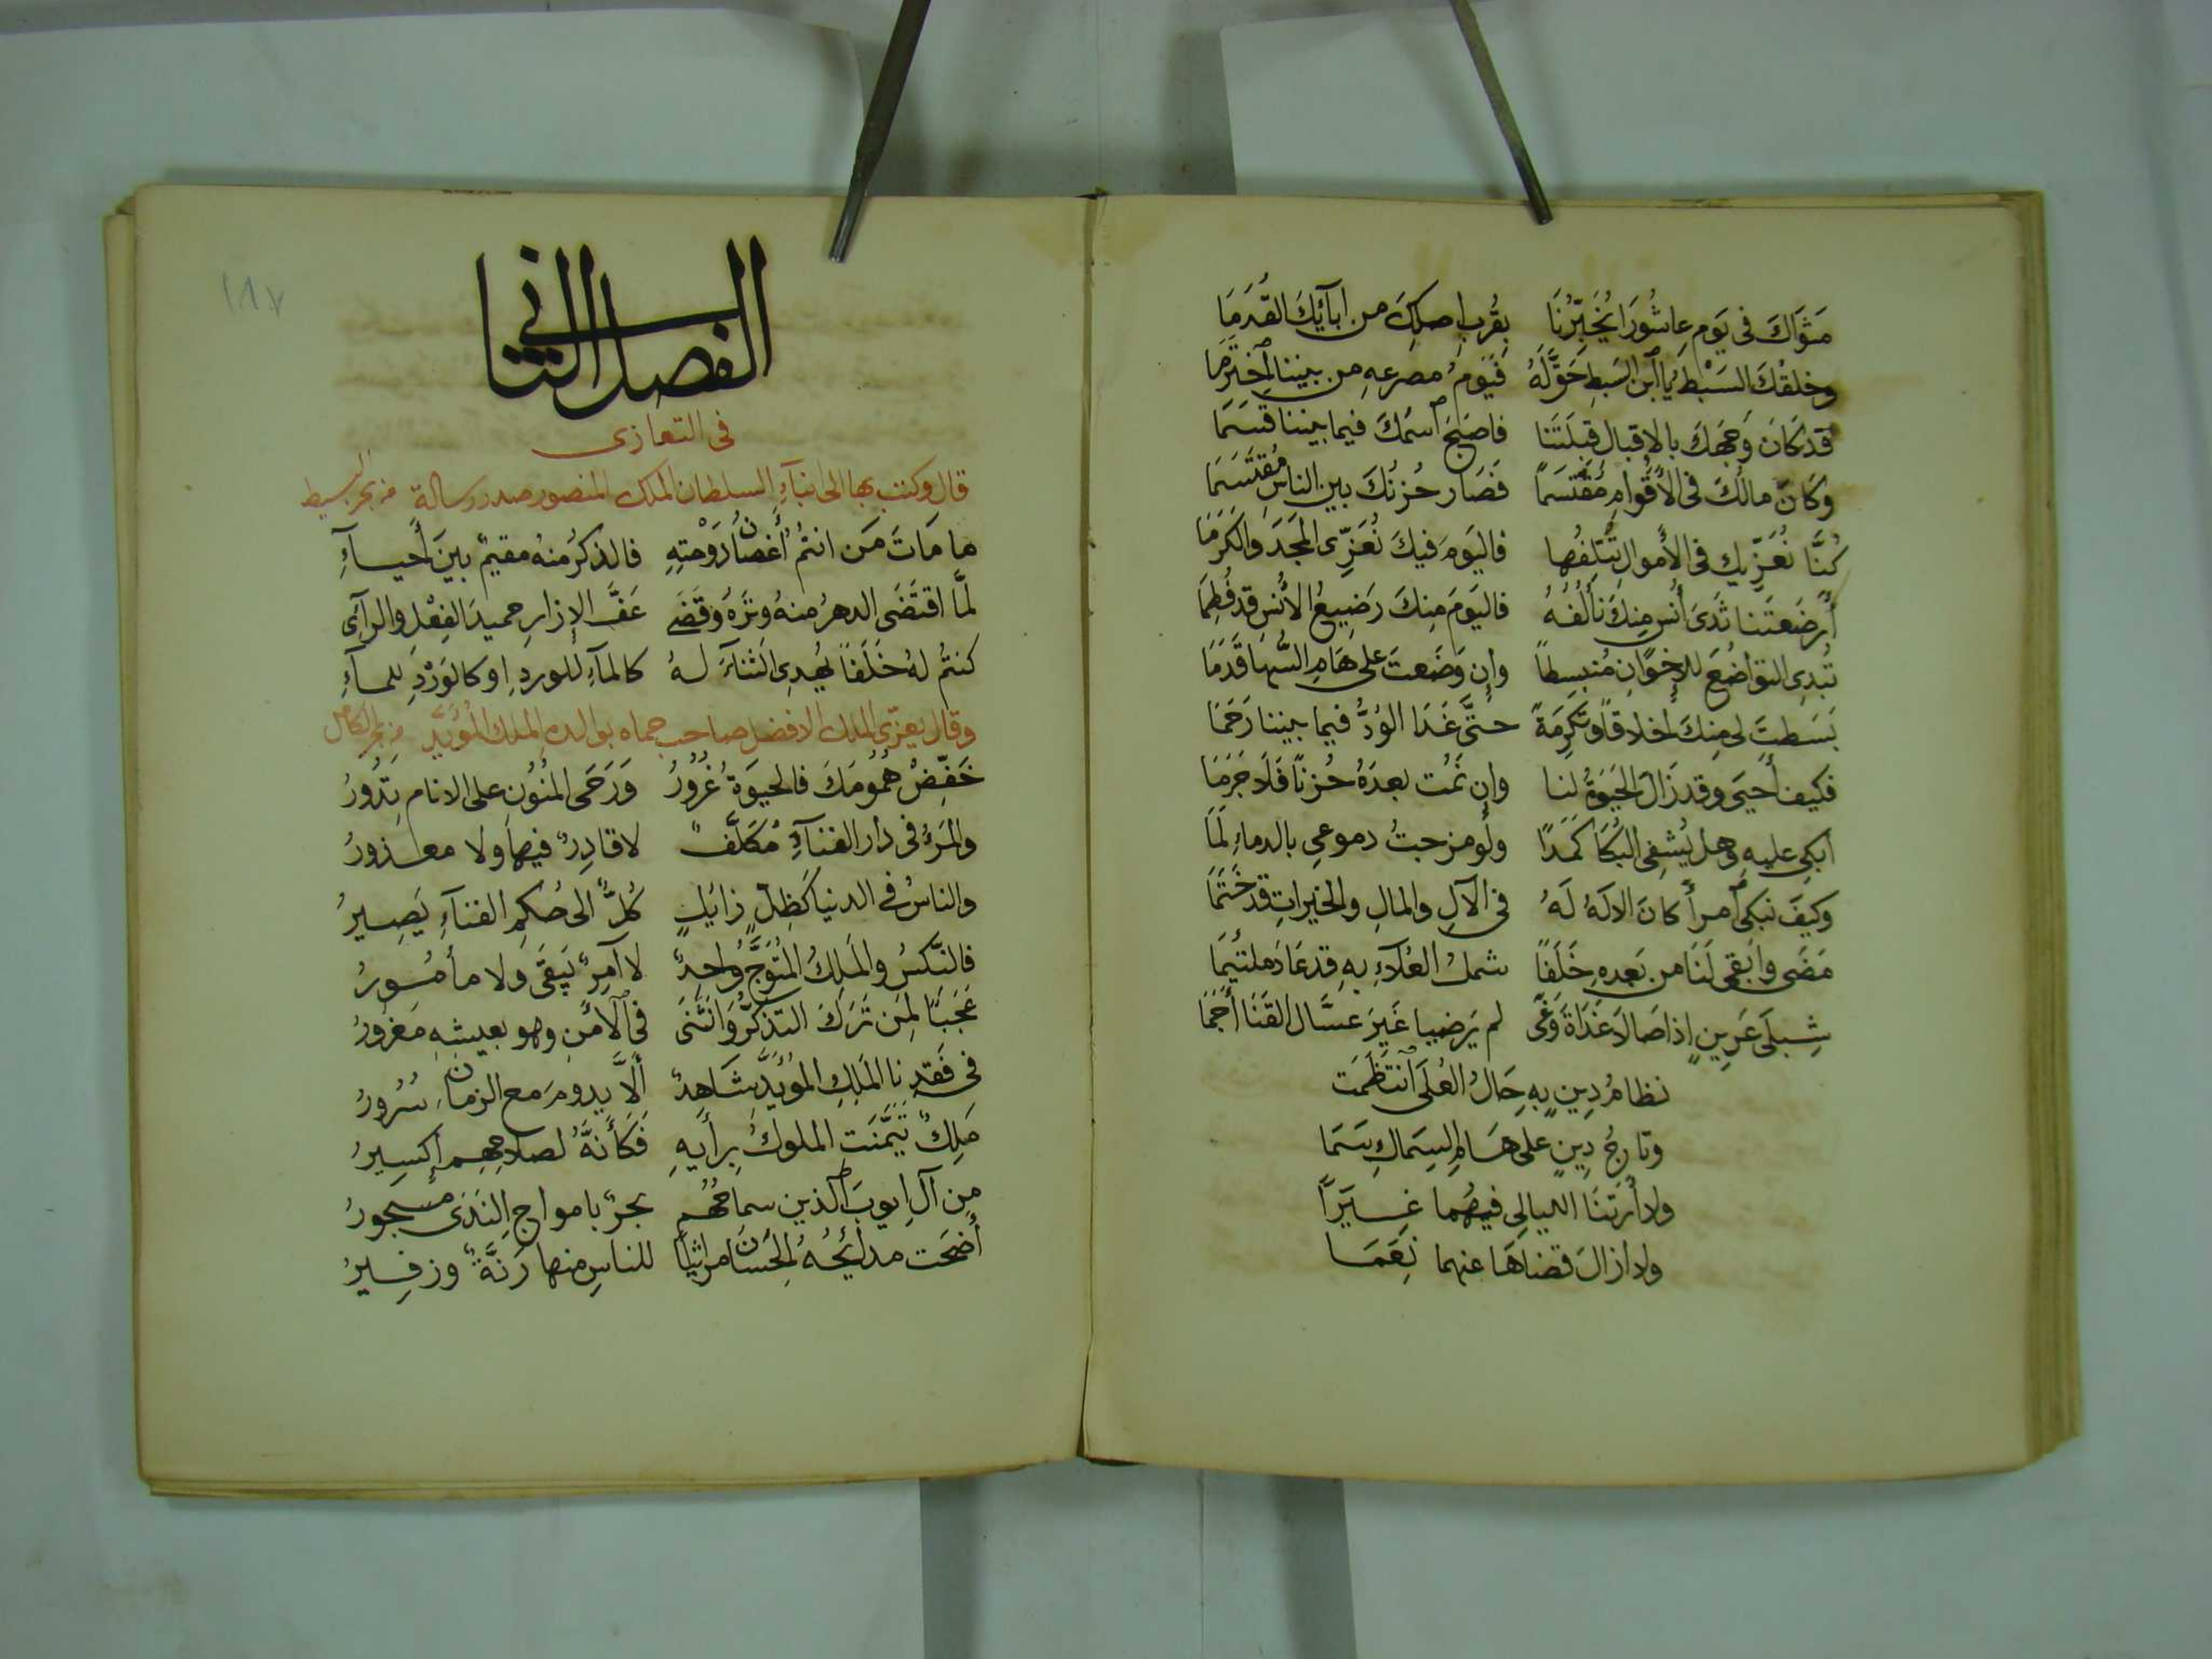 مَثوَاكَ فى يَوم عاشُورَا يُخَبِّرُنَا بقُربِ اصلِكَ من ابآئِكَ القُدَمَا
وخلقُكَ السَبْط يَا ٱبن السَبطِ حَقَّ لَهُ فيَومُ مصرعِهِ من بيننا ٱختُرِمَا
قد كَانَ وَجهكَ بالإقبال قِبلَتَنَا فاصبَحَ ٱسمُكَ فيما بيننا قسَمَا
وكَانَ مالُكَ فى الأقوام مُقتَسَماً فَصَار حُزنُكَ بين الناس مُقتَسَمَا
كُنَّا نُعَزِّيك فى الأَموال تُتلِفُها فاليَومَ فيكَ نُعَزِّى المَجَدَ والكَرَمَا
أَرضَعتَنا ثَدَىَ أُنس مِنكَ نَأْلَفُهُ فاليَومَ مِنكَ رَضِيعُ الأُنسِ قد فُطِمَا
تُبدِى التواضُعَ للإخوَانِ مُنبسِطاً وإن وَضَعتَ على هَامِ السُّهَا قَدَمَا
بَسَطتَ لى مِنكَ أخلاقاً وتَكرِمَةً حتَّى غَدَا الوُدُّ فيما بيننا رَحَمَا
فكيف أَحيَى وقد زَالَ الحَيَوةُ لنا وإن نَمُت بعدَهُ حُزناً فَلَا جَرَمَا
ابكِى عليهِ وهل يُشفِى البُكَا كَمَدًا ولَو مزجتُ دموعى بالدماءِ لَمَا
وكيفَ نبكى ٱمرأً كانَ الالَهُ لَهُ فى الآلِ والمالِ والخيراتِ قد خَتَمَا
مَضَى وابقى لَنَا من بَعدِهِ خَلَفًا شملُ العُلَآءِ بِهِ قد عَادَ ملتئِمَا
شِبلَى عَرِينٍ اذا صَالَا غَدَاةَ وَغًى لم يَرضيا غَيرَ عسَّال القَنَا أَجَمَا
نظامُ دِينٍ بهِ حَالُ العُلَى ٱنتَظَمَت
وتاجُ دِينٍ على هَامِ السِماكِ سَمَا
ولا أَرَتنَا الليالِى فيهُما غِيَرًا
ولا ازالَ قضاهَا عنهما نِعَمَا
الفصل الثانى
فى التعازى
قال وكتب بها الى ابنآءِ السلطان الملك المنصور صدر رسالة من بحر البسيط
ما مَاتَ مَن انتمُ أغصَانُ دَوْحتِهِ فالذكرُ منهُ مقيمٌ بينَ أَحيآءِ
لمَّا اقتَضَى الدهرُ منهُ وِترَهُ وَقَضَى عَفَّ الإزارِ حميدَ الفِعْلِ والرآئ
كنتمُ لهُ خَلَفاً يُهدِى الثنآءَ لهُ كالمآءِ للوردِ او كالوَرْدِ للمآءِ
وقال يعزى الملك الافضل صاحب حماه بوالدهِ الملك المُؤَيَّد من بحر الكامل
خَفِّضْ هُمُومَكَ فالحيَوةُ غُرُورُ وَرَحَى المَنُوُن على الانام تَدُورُ
والمَرءُ فى دار الفنآءِ مُكَلَّفٌ لا قادِرٌ فيها ولا معذورُ
والناسُ فى الدنيا كَظِلٍّ زائِلٍ كُلٌّ الى حُكمِ الفنآءِ يَصِيرُ
فالنَّكسُ والمَلِكُ المُتوَّجُ واحِدٌ لا آمِرٌ يَبقَى ولا مأمُورُ
عَجَبًا لمَن تَرَكَ التذكُّرَ وَانثنَى فى ٱلأَمنِ وهو بعيشِهِ مَغرُورُ
فى فَقدِنا المَلِكِ المُؤَيَّد شَاهدٌ ألَّا يدومَ مع الزمان سُرُورُ
مَلِكٌ تَيَمَّنَتِ الملوكُ برأيهِ فَكَأَنَّهُ لصلاحِهِم إكسِيرُ
مِن آلِ ايوبَ ٱلذين سماحُهُم بحرٌ بامواجِ النَدَى مسجورُ
أَضحَت مدائحُهُ الحِسَانُ مراثياً للناسِ منها رَنَّةٌ وزفِيرُ